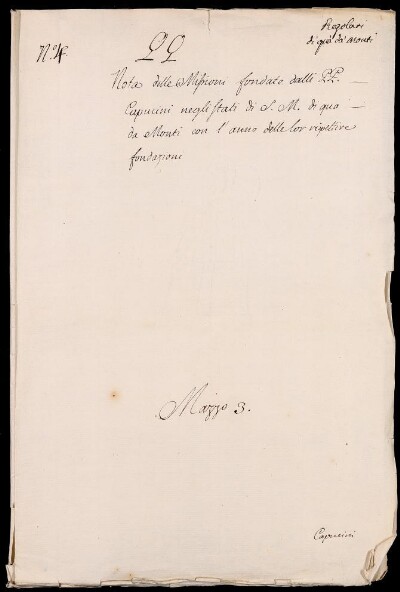 Regolari
di quà da' Monti
N.° 4
P P
Nota delle Missioni fondate dalli P.P.
Capucini negli stati di S. M. di qua
da Monti con l'anno delle lor rispettive
fondazioni
Mazzo 3.
Capucini